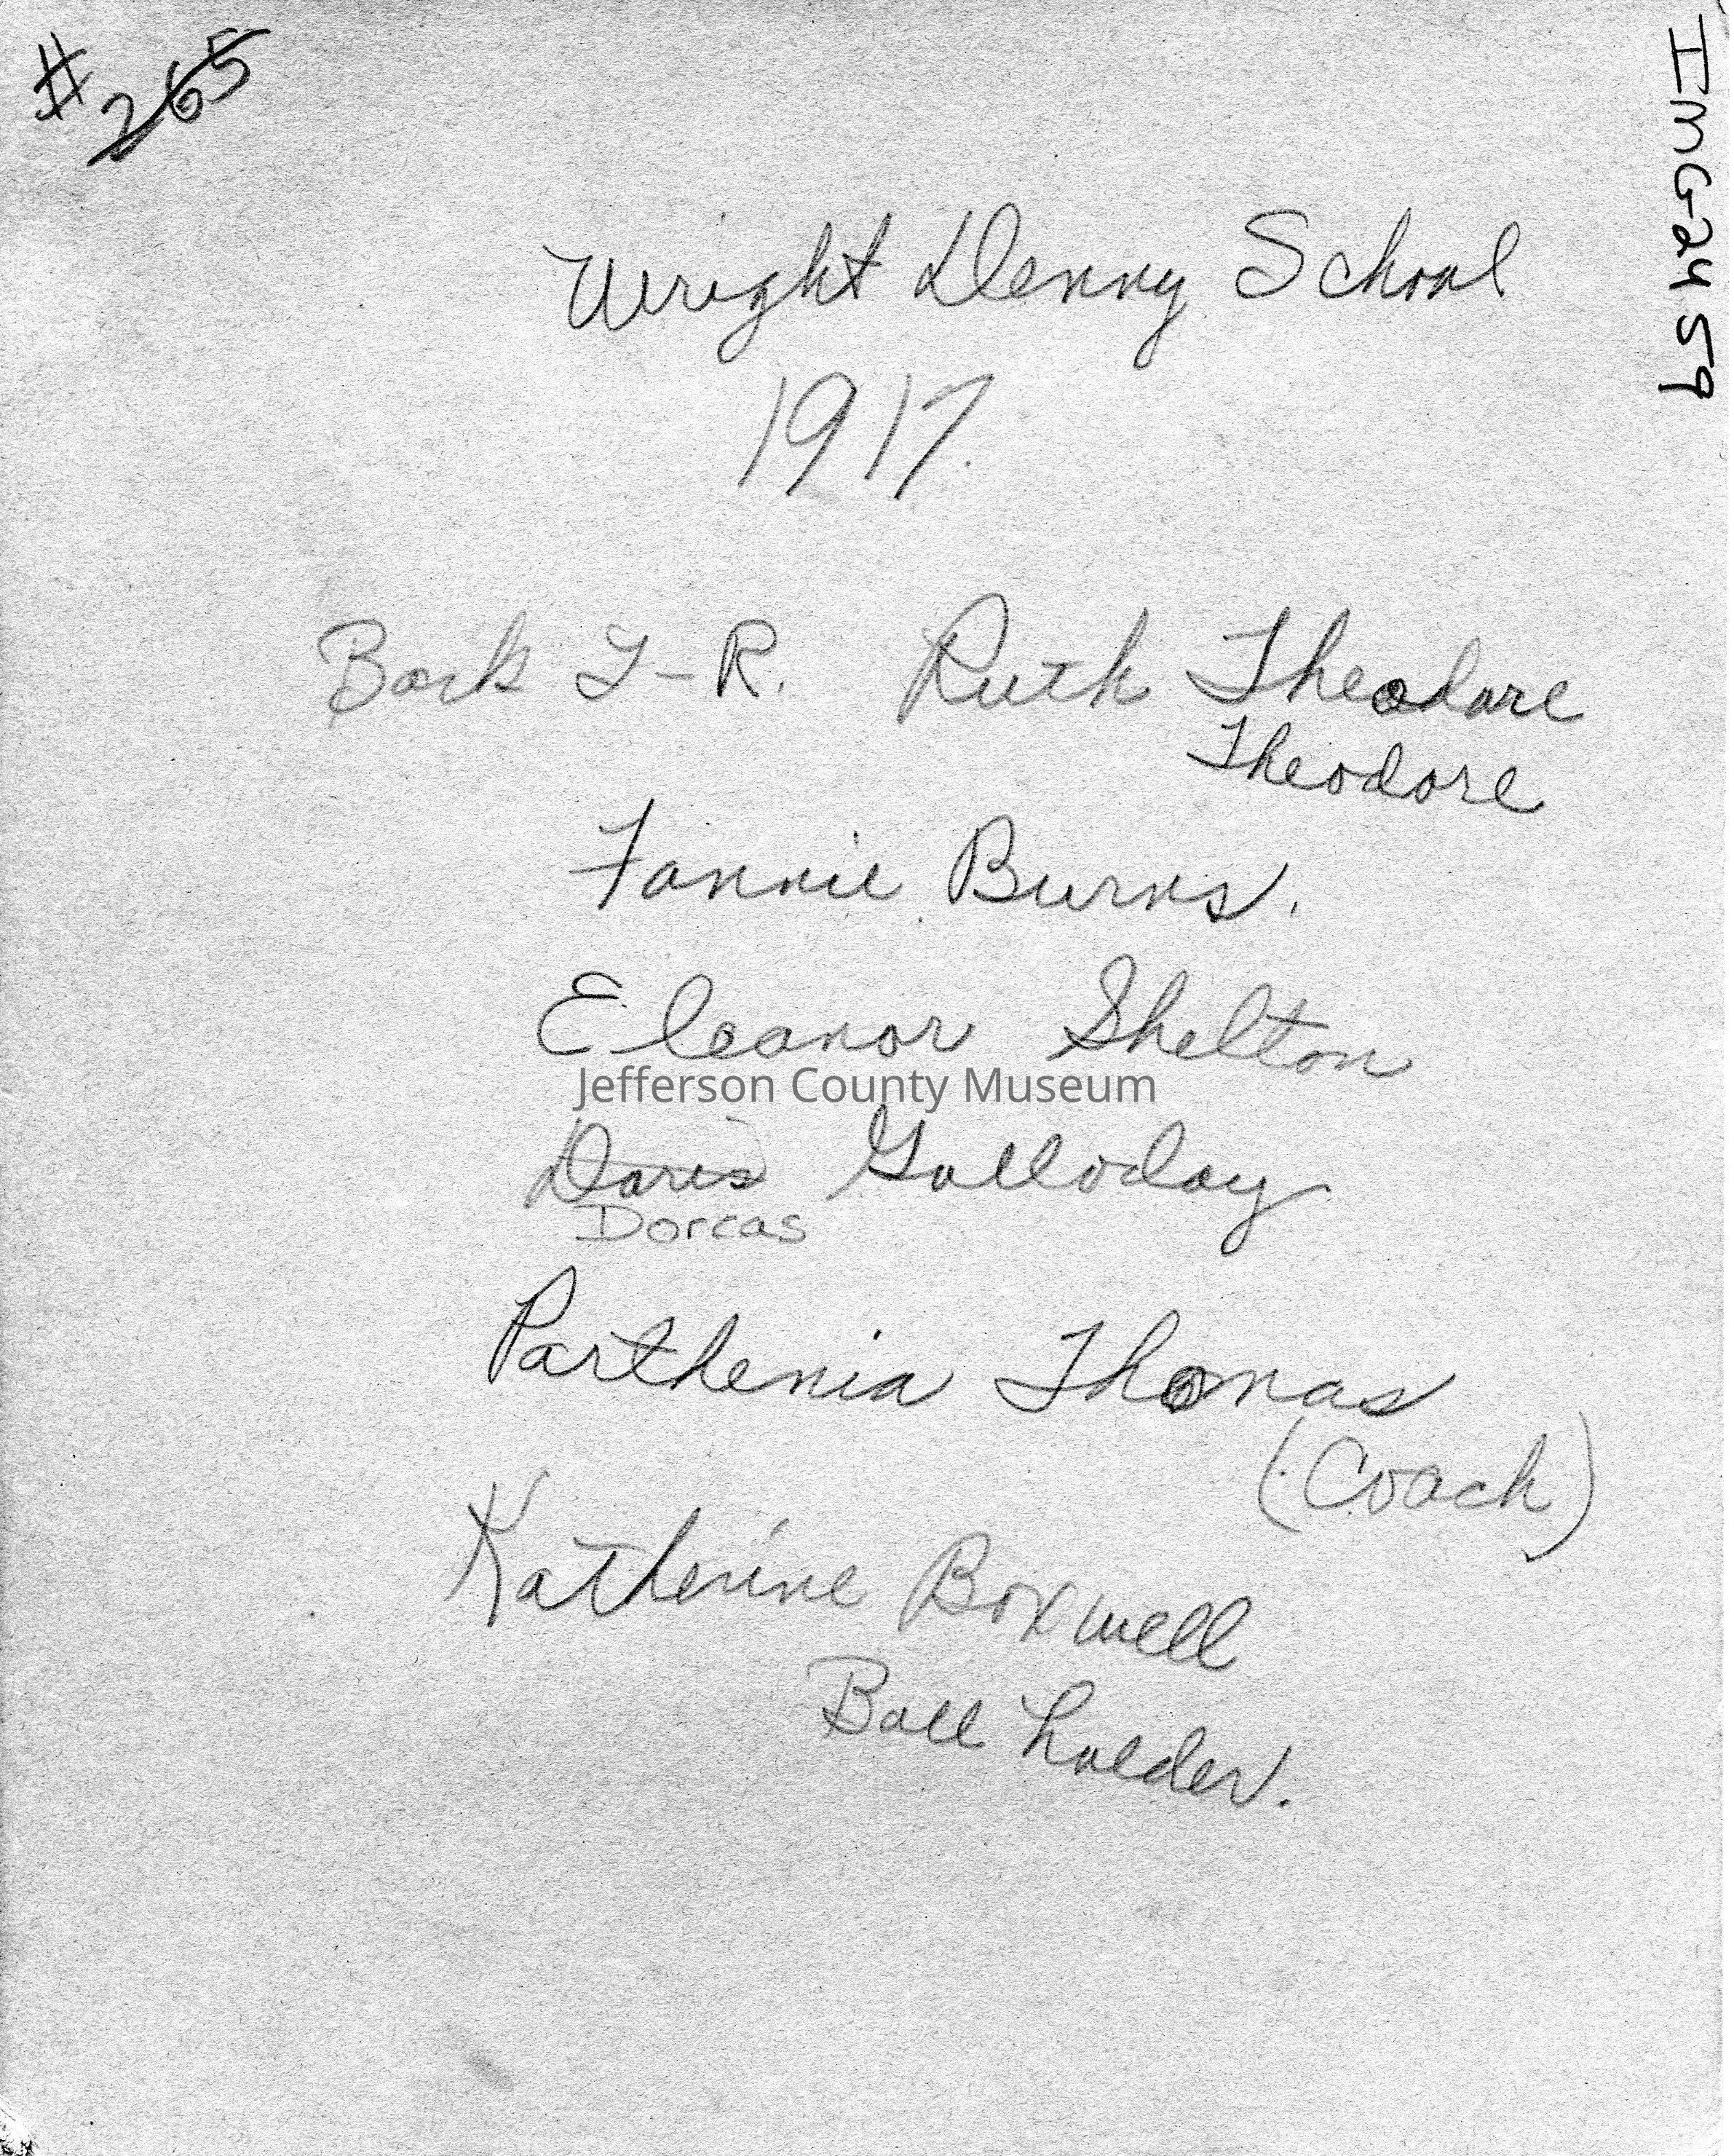 #265
IMG-2459
Wright Denny School
1917.
Back L-R. Ruth Theodore
Theodore
Fannie Burns.
Eleanor Shelton
Jefferson County Museum
Doris Golloday
Dorcas
Parthenia Thomas
(Coach)
Katherine Boxwell
Ball holder.